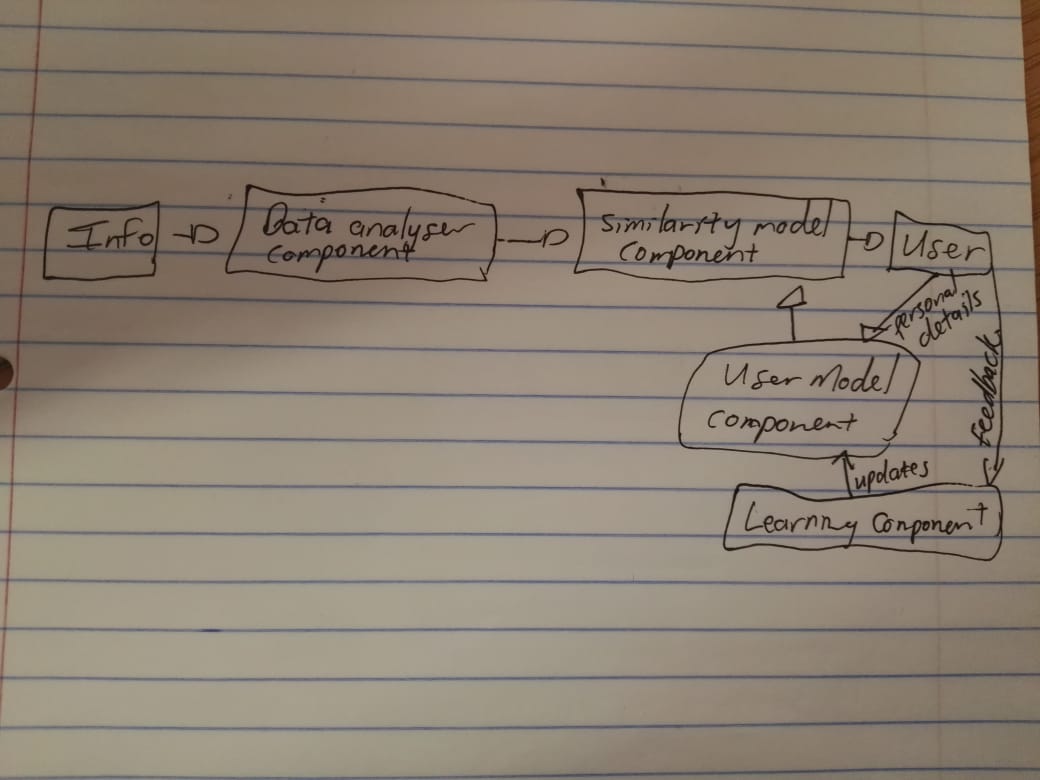 Info
Data analyser
component
Similarity model
component
User
personal
details
feedback
User Model
component
updates
Learning component